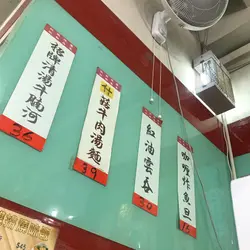 招牌清湯牛腩河
36
什菇牛肉湯麵
39
紅油雲吞
30
咖喱炸魚旦